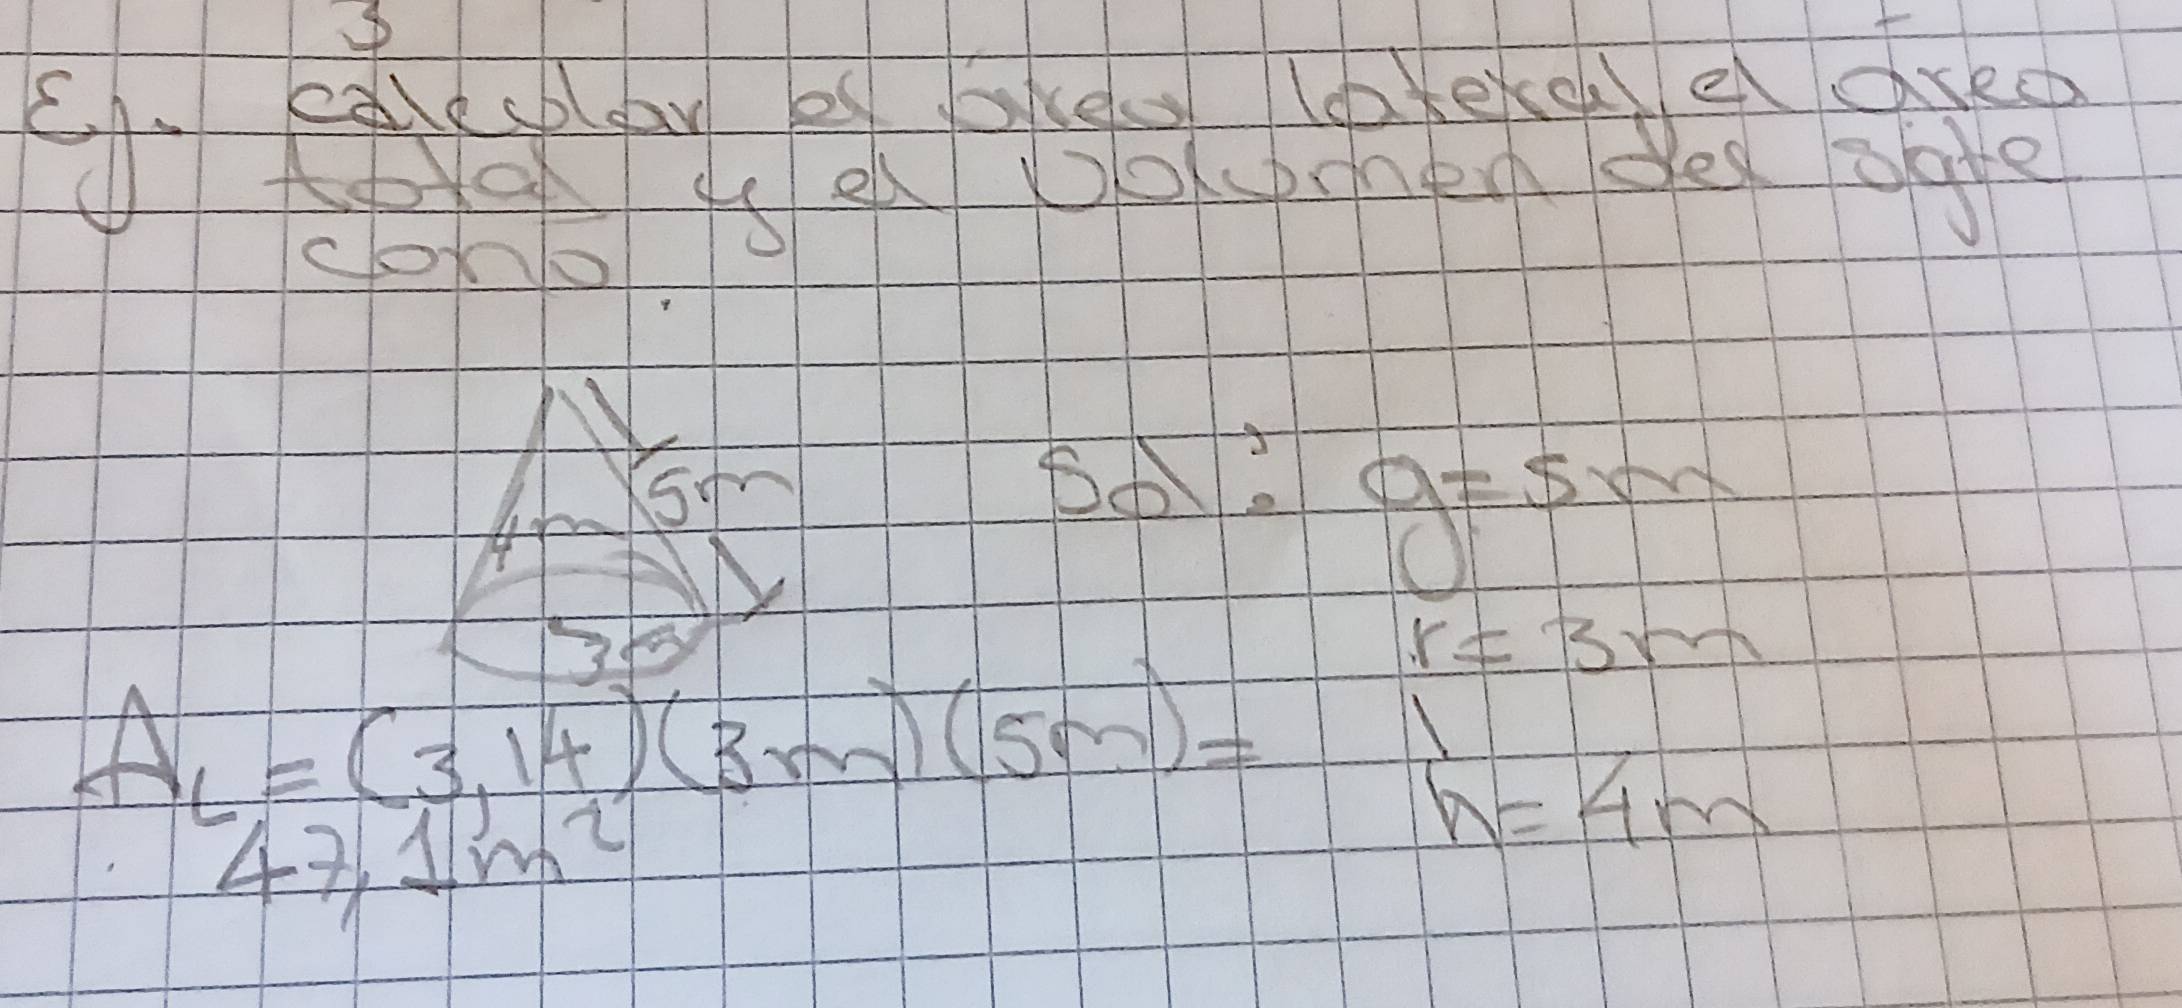 3
Ej. calcular el área lateral, el área
total y el volumen del sgte
cono.
5m
4m
3m
Sol: g=5m
r=3m
h=4m
AL=(3,14)(3m)(5m)=
47,1m²